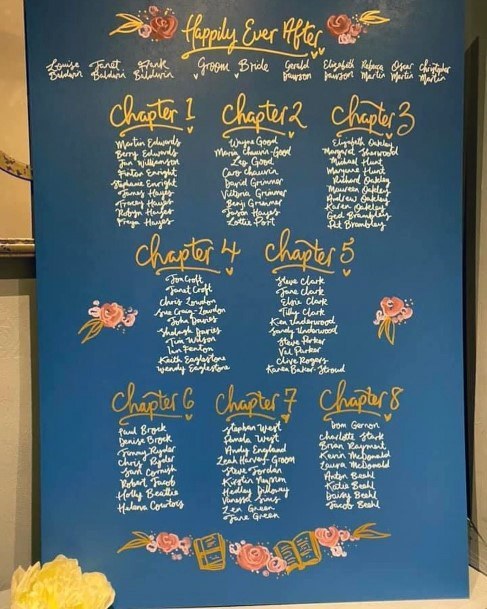 Happily Ever After
Louise Baldwin
Janet Baldwin
Frank Baldwin
Groom
Bride
Gerald Dawson
Elizabeth Dawson
Rebecca Martin
Oscar Martin
Christopher Martin
Chapter 1
Martin Edwards
Berry Edwards
Jan Williamson
Fintan Enright
Stephanie Enright
James Hayes
Tracey Hayes
Robyn Hayes
Freya Hayes
Chapter 2
Wayne Good
Maria Chauvin-Good
Leg Good
Caro Chauvin
David Grimmer
Victoria Grimmer
Benji Grimmer
Jason Hayes
Lottie Port
Chapter 3
Elizabeth Oakley
Margaret Sherwood
Michael Hunt
Maryanne Hunt
Richard Oakley
Maureen Oakley
Andrew Oakley
Karen Oakley
Ged Brambley
Pat Brambley
Chapter 4
Jon Croft
Janet Croft
Chris Lowdon
Sue Craig-Lowdon
John Davies
Shelagh Davies
Tim Wilson
Ian Fenton
Keith Eaglestone
Wendy Eaglestone
Chapter 5
Steve Clark
Jane Clark
Elsie Clark
Tilly Clark
Ken Underwood
Sandy Underwood
Steve Parker
Viv Parker
Clive Rogers
Karen Baker-Stroud
Chapter 6
Paul Brock
Denise Brock
Jimmy Ryder
Chris Ryder
Sam Cornish
Robert Jacob
Holly Beattie
Helena Courtois
Chapter 7
Stephen West
Pamela West
Andy England
Leah Harvey-Groom
Steve Jordan
Kirstin
Hedley
Vanessa Sims
Len Green
Jane Green
Chapter 8
Dom Gernon
Charlotte Stark
Brian Rayment
Kevin McDonald
Laura McDonald
Anton Beehl
Katie Beehl
Daisy Beehl
Jacob Beehl